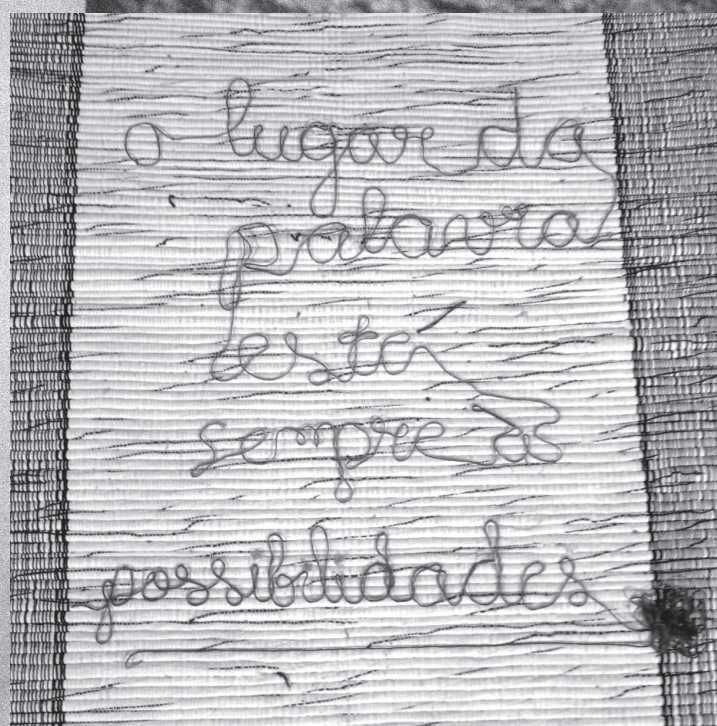 o lugar da
palavra
está
sempre às
possibilidades